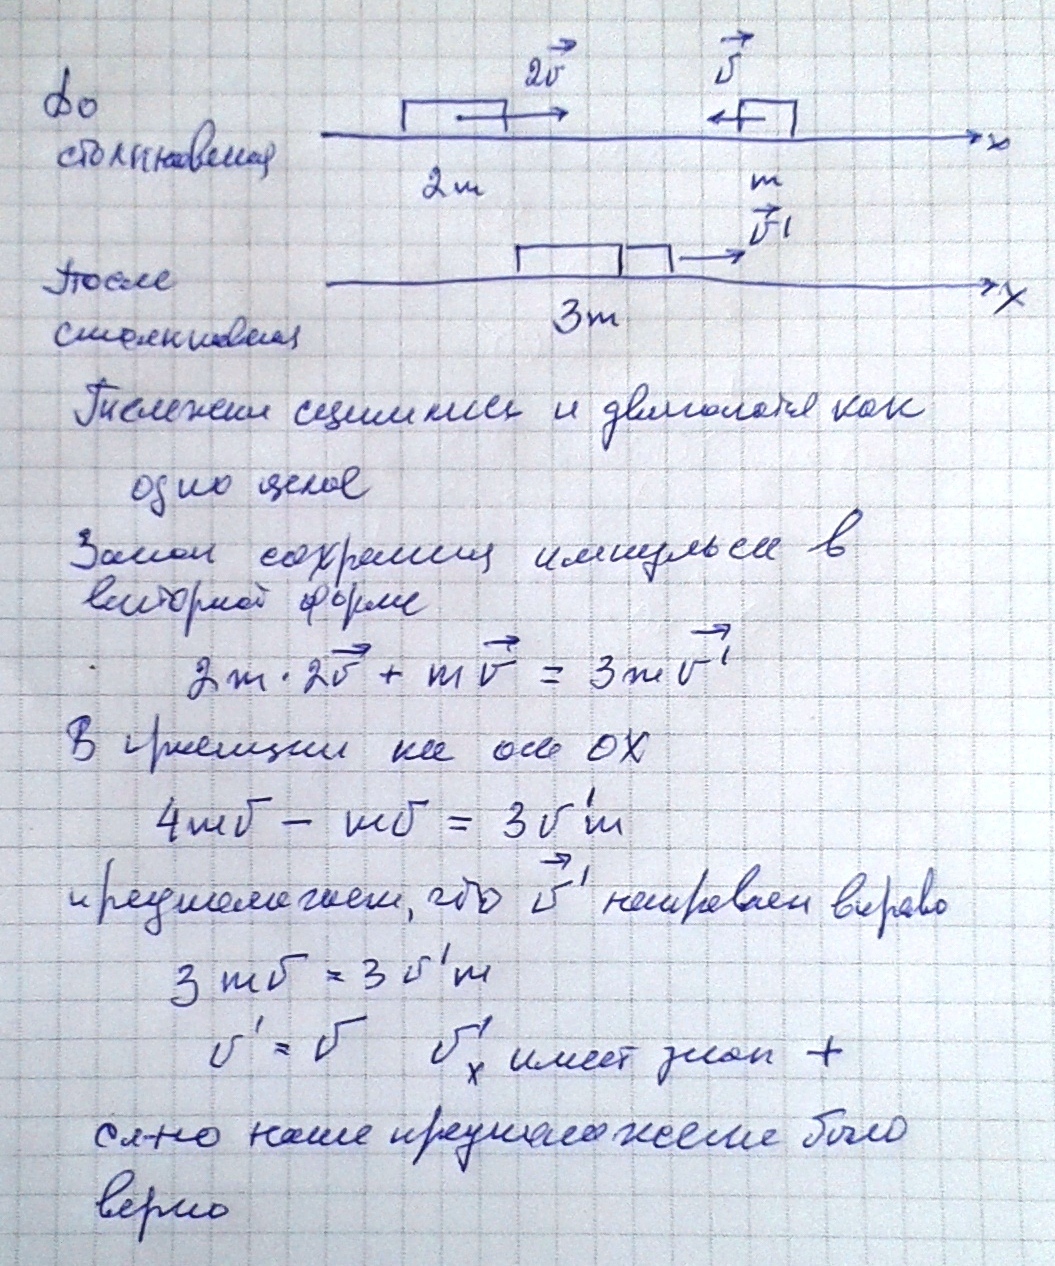 До
столкновения
2v⃗ v⃗
x
2m m
v⃗'
После
столкновения
x
3m
Тележки сцепились и двигаются как
одно целое
Закон сохранения импульса в
векторной форме
2m·2v⃗ + mv⃗ = 3mv⃗'
В проекции на ось OX
4mv − mv = 3v'm
предполагаем, что v⃗' направлен вправо
3mv = 3v'm
v' = v v'ₓ имеет знак +
сл-но наше предположение было
верно